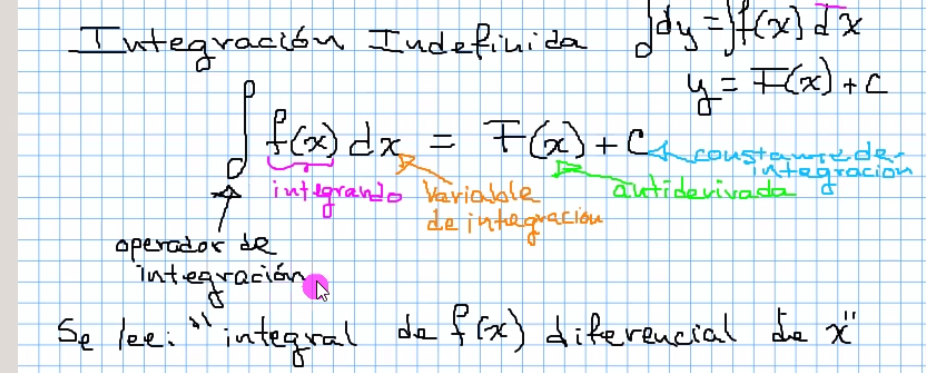 Integración Indefinida ∫dy = ∫f(x) dx
y = F(x) + C
∫ f(x) dx = F(x) + C
constante de
integración
integrando
Variable
de integración
antiderivada
operador de
integración
Se lee: "integral de f(x) diferencial de x"